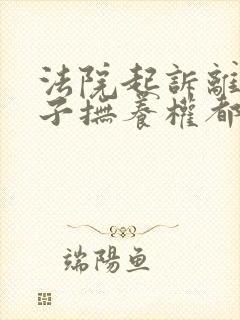 法院起訴離
子撫養權都
端陽魚